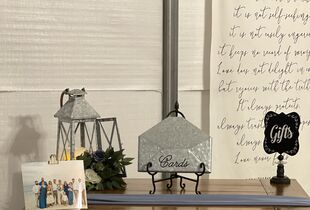 it is not self-seeking
it is not easily angered
it keeps no record of wrongs
Love does not delight in
but rejoices with the truth
It always protects
always trusts
always
Love never
Cards
Gifts